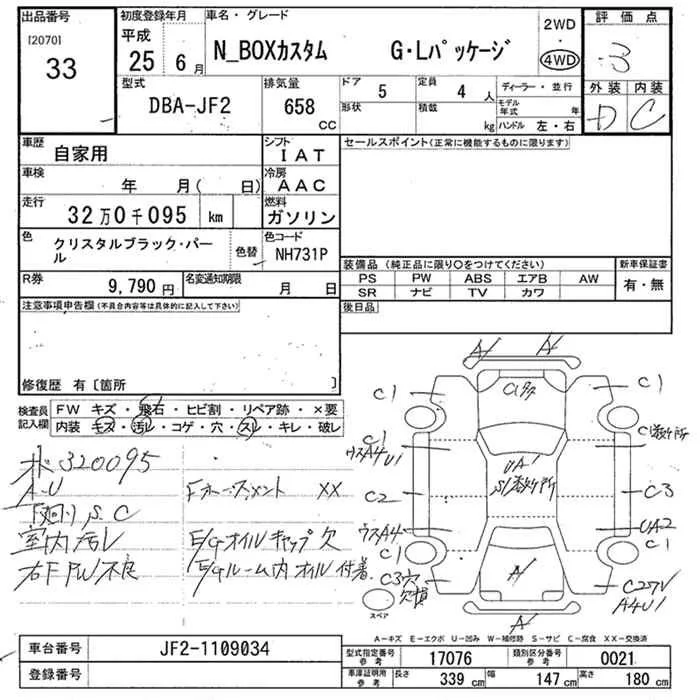 出品番号
[2070]
33
初度登録年月
平成
25 6月
車名・グレード
N_BOXカスタム G・Lパッケージ
2WD
4WD
評価点
3
外装 内装
D C
型式
DBA-JF2
排気量
658
CC
ドア
5
形状
定員
4人
積載
kg
ディーラー・並行
モデル年式 年
ハンドル 左・右
車歴
自家用
シフト
IAT
車検
年 月( 日)
冷房
AAC
走行
32万0千095 km
燃料
ガソリン
色
クリスタルブラック・パール
色替
色コード
NH731P
R券
9,790円
名変通知期限
月 日
セールスポイント(正常に機能するものに限ります)
装備品(純正品に限り○をつけてください)
PS PW ABS エアB AW
SR ナビ TV カワ
新車保証書
有・無
後日品
注意事項申告欄(不具合内容等は具体的に記入して下さい)
修復歴 有〔箇所 〕
検査員記入欄
FW キズ・飛石・ヒビ割・リペア跡・×要
内装 キズ・汚レ・コゲ・穴・スレ・キレ・破レ
320095
A-U
下廻りS.C
室内汚レ
右FPW不良
XX
E/Gオイルキャップ欠
E/Gルーム内オイル付着
A
A
C1
C1
C1
C1
ウスA4U1
UA1
C2
C3
ウスA4
UA2
C1
C1
C3穴
欠損
A
A
A4U1
スペア
A-キズ E-エクボ U-凹み W-補修跡 S-サビ C-腐食 XX-交換済
車台番号
JF2-1109034
登録番号
型式指定番号
参考
17076
類別区分番号
参考
0021
車庫証明用
参考
長さ 339 cm
幅 147 cm
高さ 180 cm